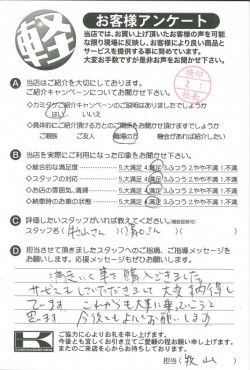 軽
お客様アンケート
当店では、お買い上げ頂いたお客様の声を可能
な限り現場に反映し、お客様により良い商品と
サービスを提供する事に努めています。
大変お手数ですが是非お声をお聞かせ下さい。
A 当店はご紹介を大切にしております。
ご紹介キャンペーンについてお聞かせ下さい。
◇カミタケご紹介キャンペーンのご説明はありましたでしょうか
はい いいえ
◇具体的にご紹介頂ける方とのご関係をお聞かせ頂けますでしょうか
ご親族 ご友人 職場の方 機会があれば紹介したい
B 当店を実際にご利用になった印象をお聞かせ下さい。
◇総合的な満足度 5.大満足 4.満足 3.ふつう 2.やや不満 1.不満
◇スタッフの対応 5.大満足 4.満足 3.ふつう 2.やや不満 1.不満
◇お店の雰囲気、清掃 5.大満足 4.満足 3.ふつう 2.やや不満 1.不満
◇納車時のお車の状態 5.大満足 4.満足 3.ふつう 2.やや不満 1.不満
C 評価したいスタッフがいれば教えてください。(複数回答可)
スタッフ名(牧山さん)(
D 担当させて頂きましたスタッフへのご指摘、ご指導メッセージを
お願いします。応援メッセージもぜひお願いします。
車を購入できました。
サービスもしていただきまして大変納得し
ています。これからも大事に乗っていこうと
思います。今後ともよろしくお願いします。
ご協力に心よりお礼を申し上げます。
今後とも宜しくお引き立てご愛顧の程お願い申し上げます。
またのご来店を心からお待ちしております。
担当(牧山)